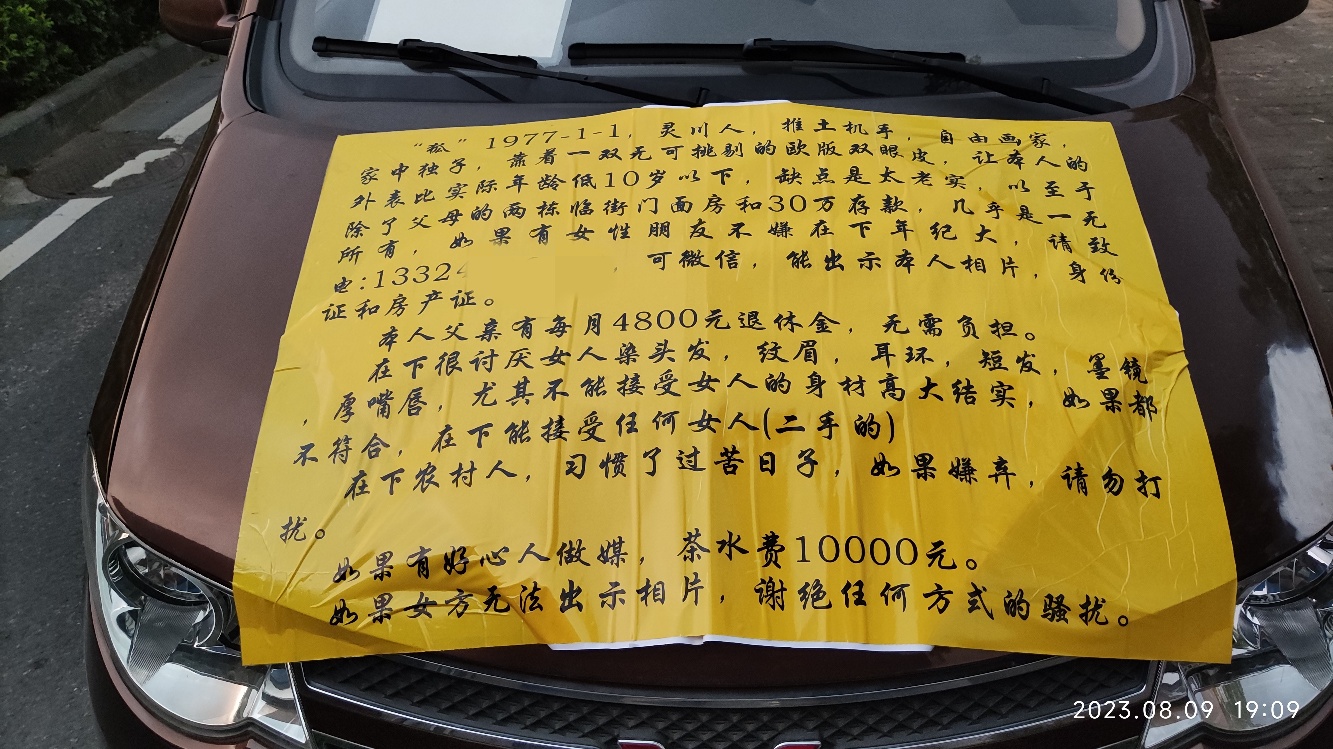 “孤”1977-1-1，灵川人，推土机手，自由画家，
家中独子，靠着一双无可挑剔的欧版双眼皮，让本人的
外表比实际年龄低10岁以下，缺点是太老实，以至于
除了父母的两栋临街门面房和30万存款，几乎是一无
所有，如果有女性朋友不嫌在下年纪大，请致
电:13324 ，可微信，能出示本人相片，身份
证和房产证。
本人父亲有每月4800元退休金，无需负担。
在下很讨厌女人染头发，纹眉，耳环，短发，墨镜
，厚嘴唇，尤其不能接受女人的身材高大结实，如果都
不符合，在下能接受任何女人(二手的)
在下农村人，习惯了过苦日子，如果嫌弃，请勿打
扰。
如果有好心人做媒，茶水费10000元。
如果女方无法出示相片，谢绝任何方式的骚扰。
2023.08.09 19:09